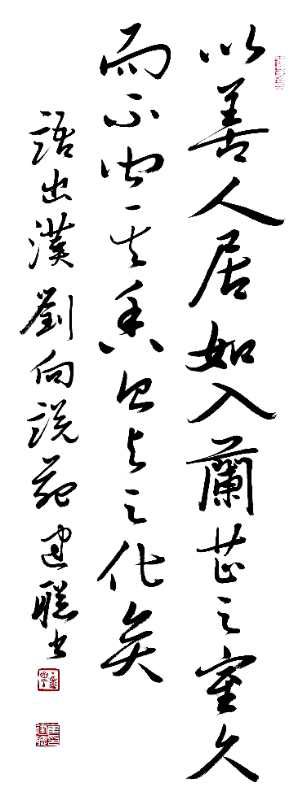 以善人居如入蘭芷之室久
而不聞其香則与之化矣
語出漢劉向說苑建書